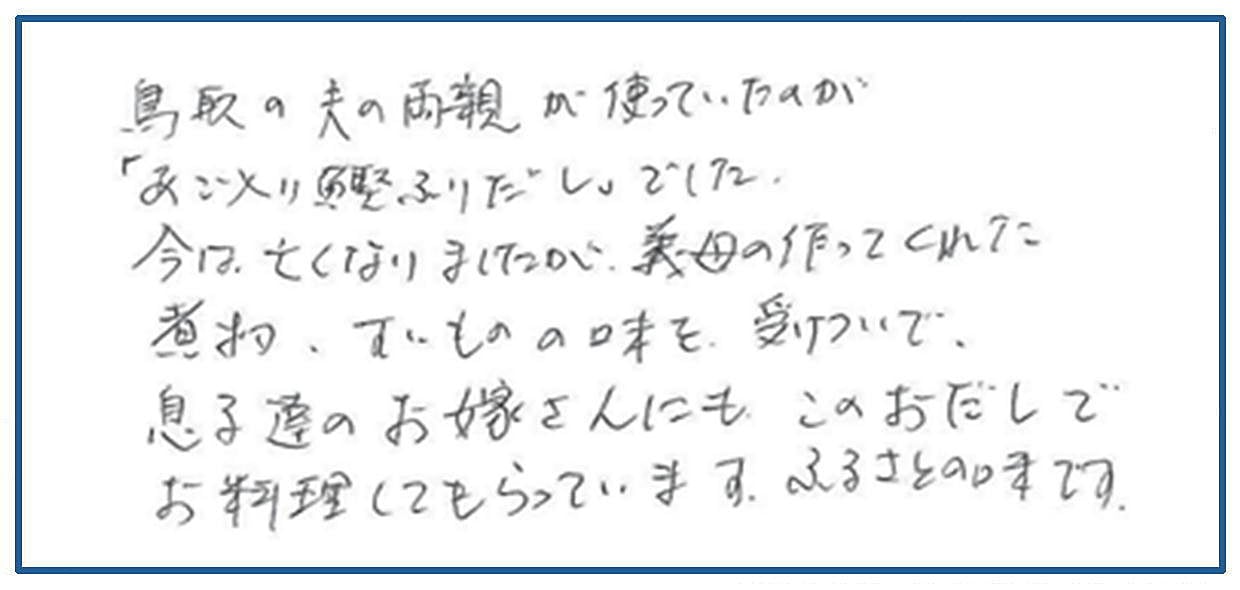 鳥取の夫の両親が使っていたのが
「あご入り鰹ふりだし」でした.
今は.亡くなりましたが.義母の作ってくれた
煮物、すいものの味を.受けついで、
息子達のお嫁さんにも.このおだしで
お料理してもらっています.ふるさとの味です.